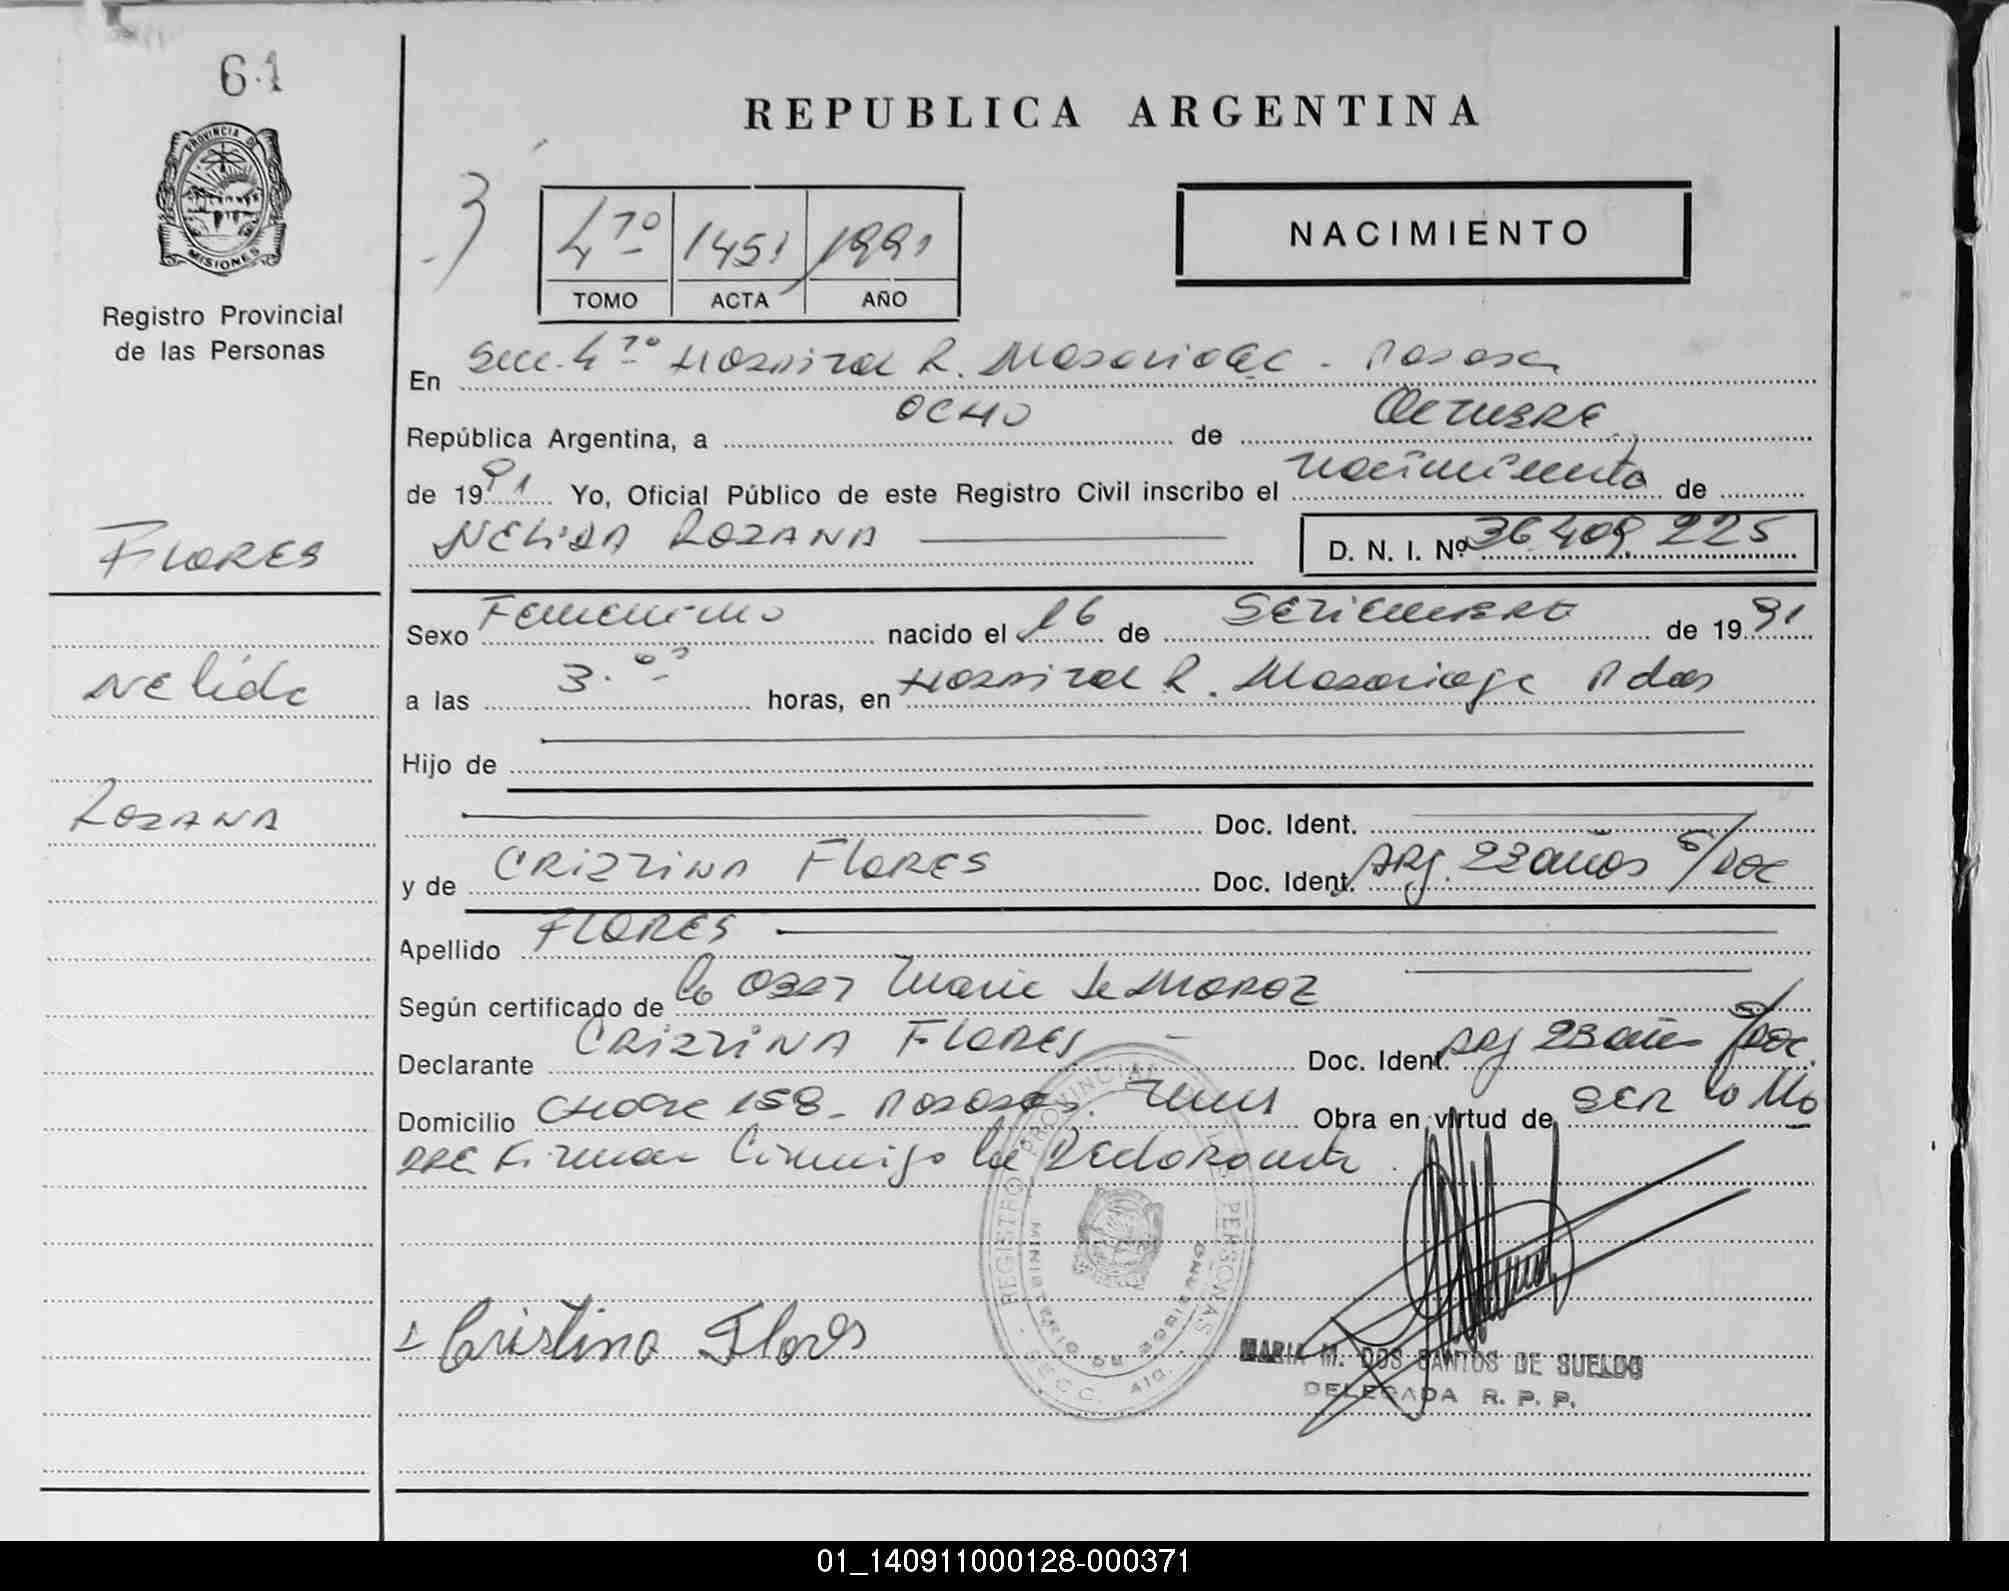 64
REPUBLICA ARGENTINA
PROVINCIA DE
MISIONES
Registro Provincial
de las Personas
3
4to 1451 1991
TOMO ACTA AÑO
NACIMIENTO
En Secc. 4to Hospital R. Madariaga - Posadas
República Argentina, a OCHO de Octubre
de 1991 Yo, Oficial Público de este Registro Civil inscribo el nacimiento de
NELIDA ROZANA D. N. I. Nº 36.409.225
FLORES
Nelida
ROZANA
Sexo Femenino nacido el 16 de SETIEMBRE de 1991
a las 3.00 horas, en Hospital R. Madariaga Pdas
Hijo de
Doc. Ident.
y de CRISTINA FLORES Doc. Ident. ARG. 23 años S/DOC
Apellido FLORES
Según certificado de la Obst Maria de MOROZ
Declarante CRISTINA FLORES Doc. Ident. ARG 23 años S/DOC.
Domicilio 158 - Posadas. Mnes Obra en virtud de SER la Ma
DRE Firman Conmigo la Declarante.
REGISTRO PROVINCIAL DE LAS PERSONAS
MINISTERIO DE GOBIERNO
SECC. 4ta.
Cristina Flores
MARIA M. DOS SANTOS DE SUELDO
DELEGADA R. P. P.
01_140911000128-000371